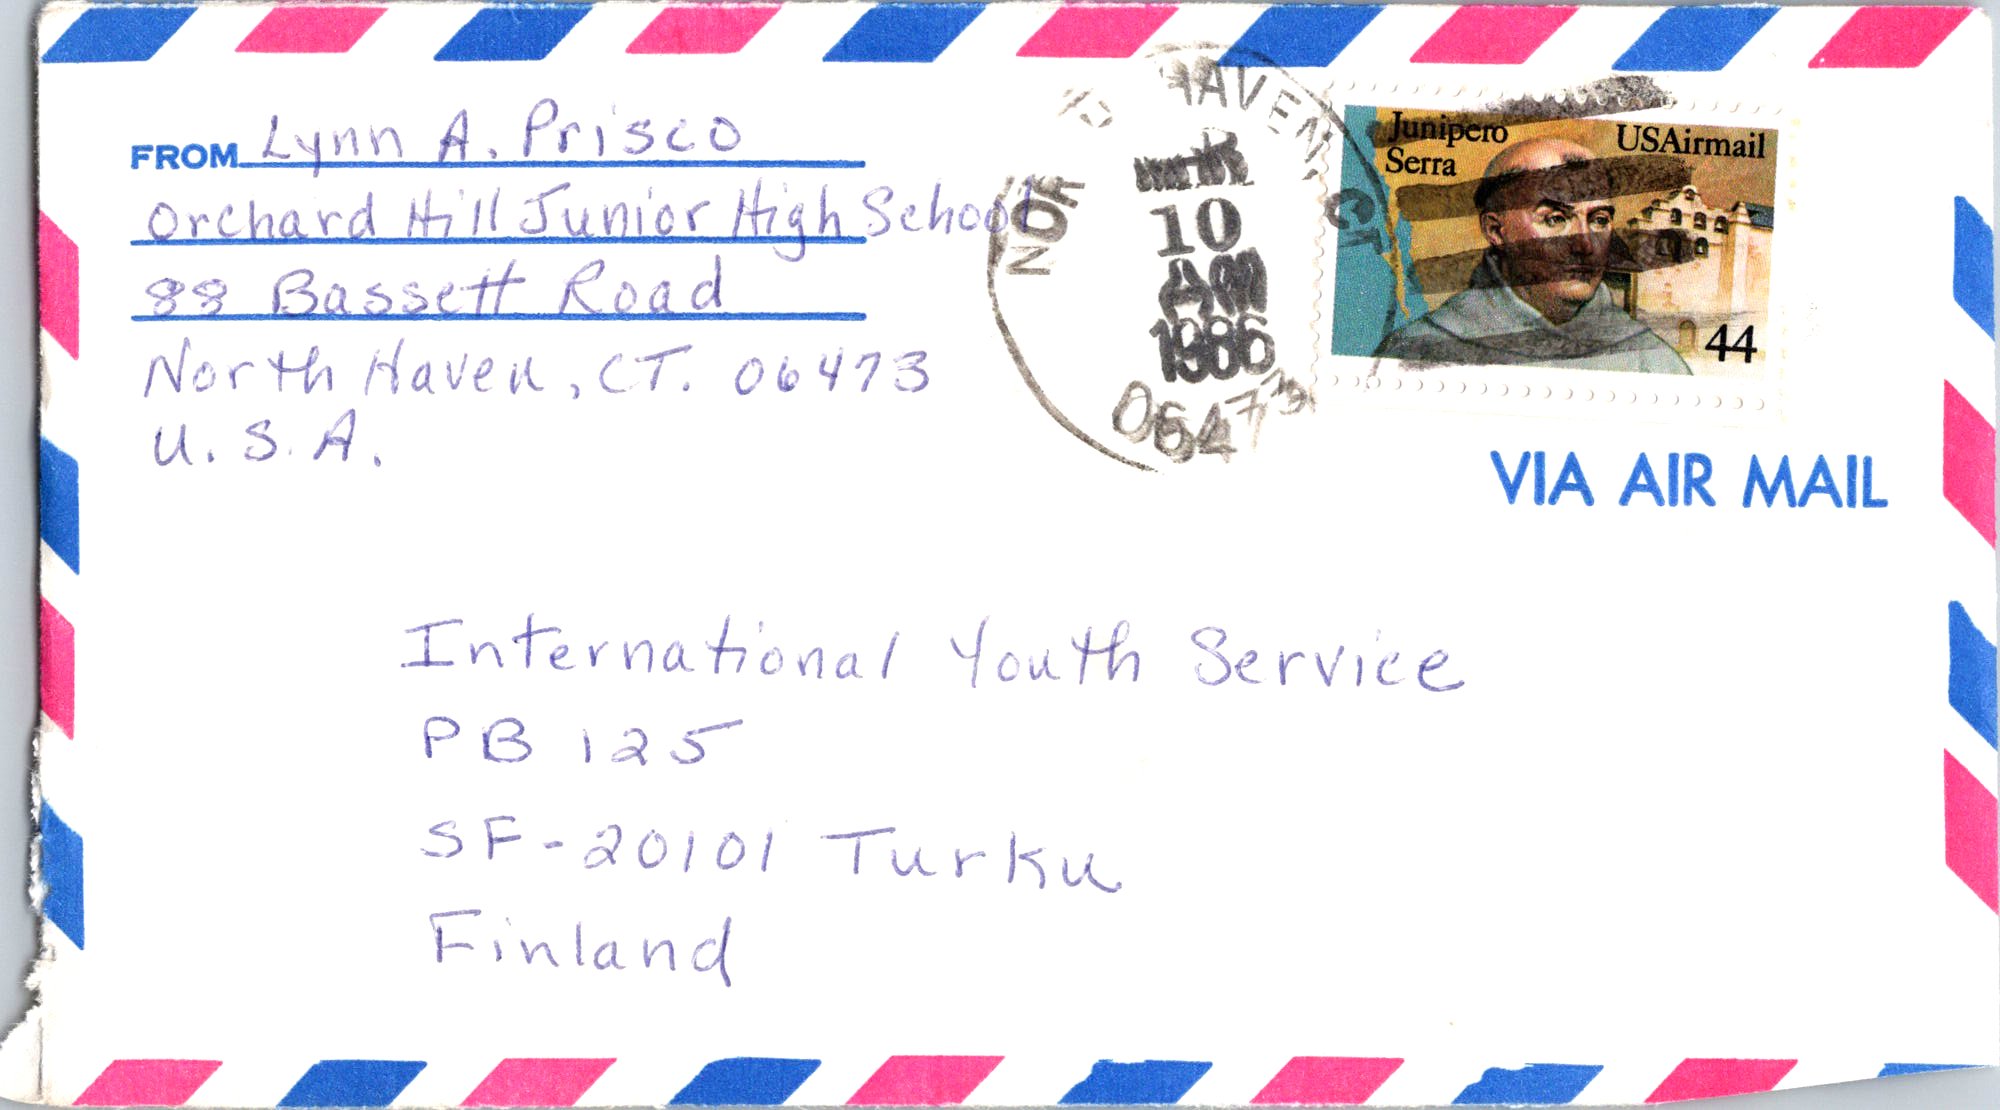 FROM Lynn A. Prisco
Orchard Hill Junior High School
88 Bassett Road
North Haven, CT. 06473
U.S.A.
HAVEN, CT
10
AM
1986
06473
Junipero
Serra
USAirmail
44
VIA AIR MAIL
International Youth Service
PB 125
SF-20101 Turku
Finland